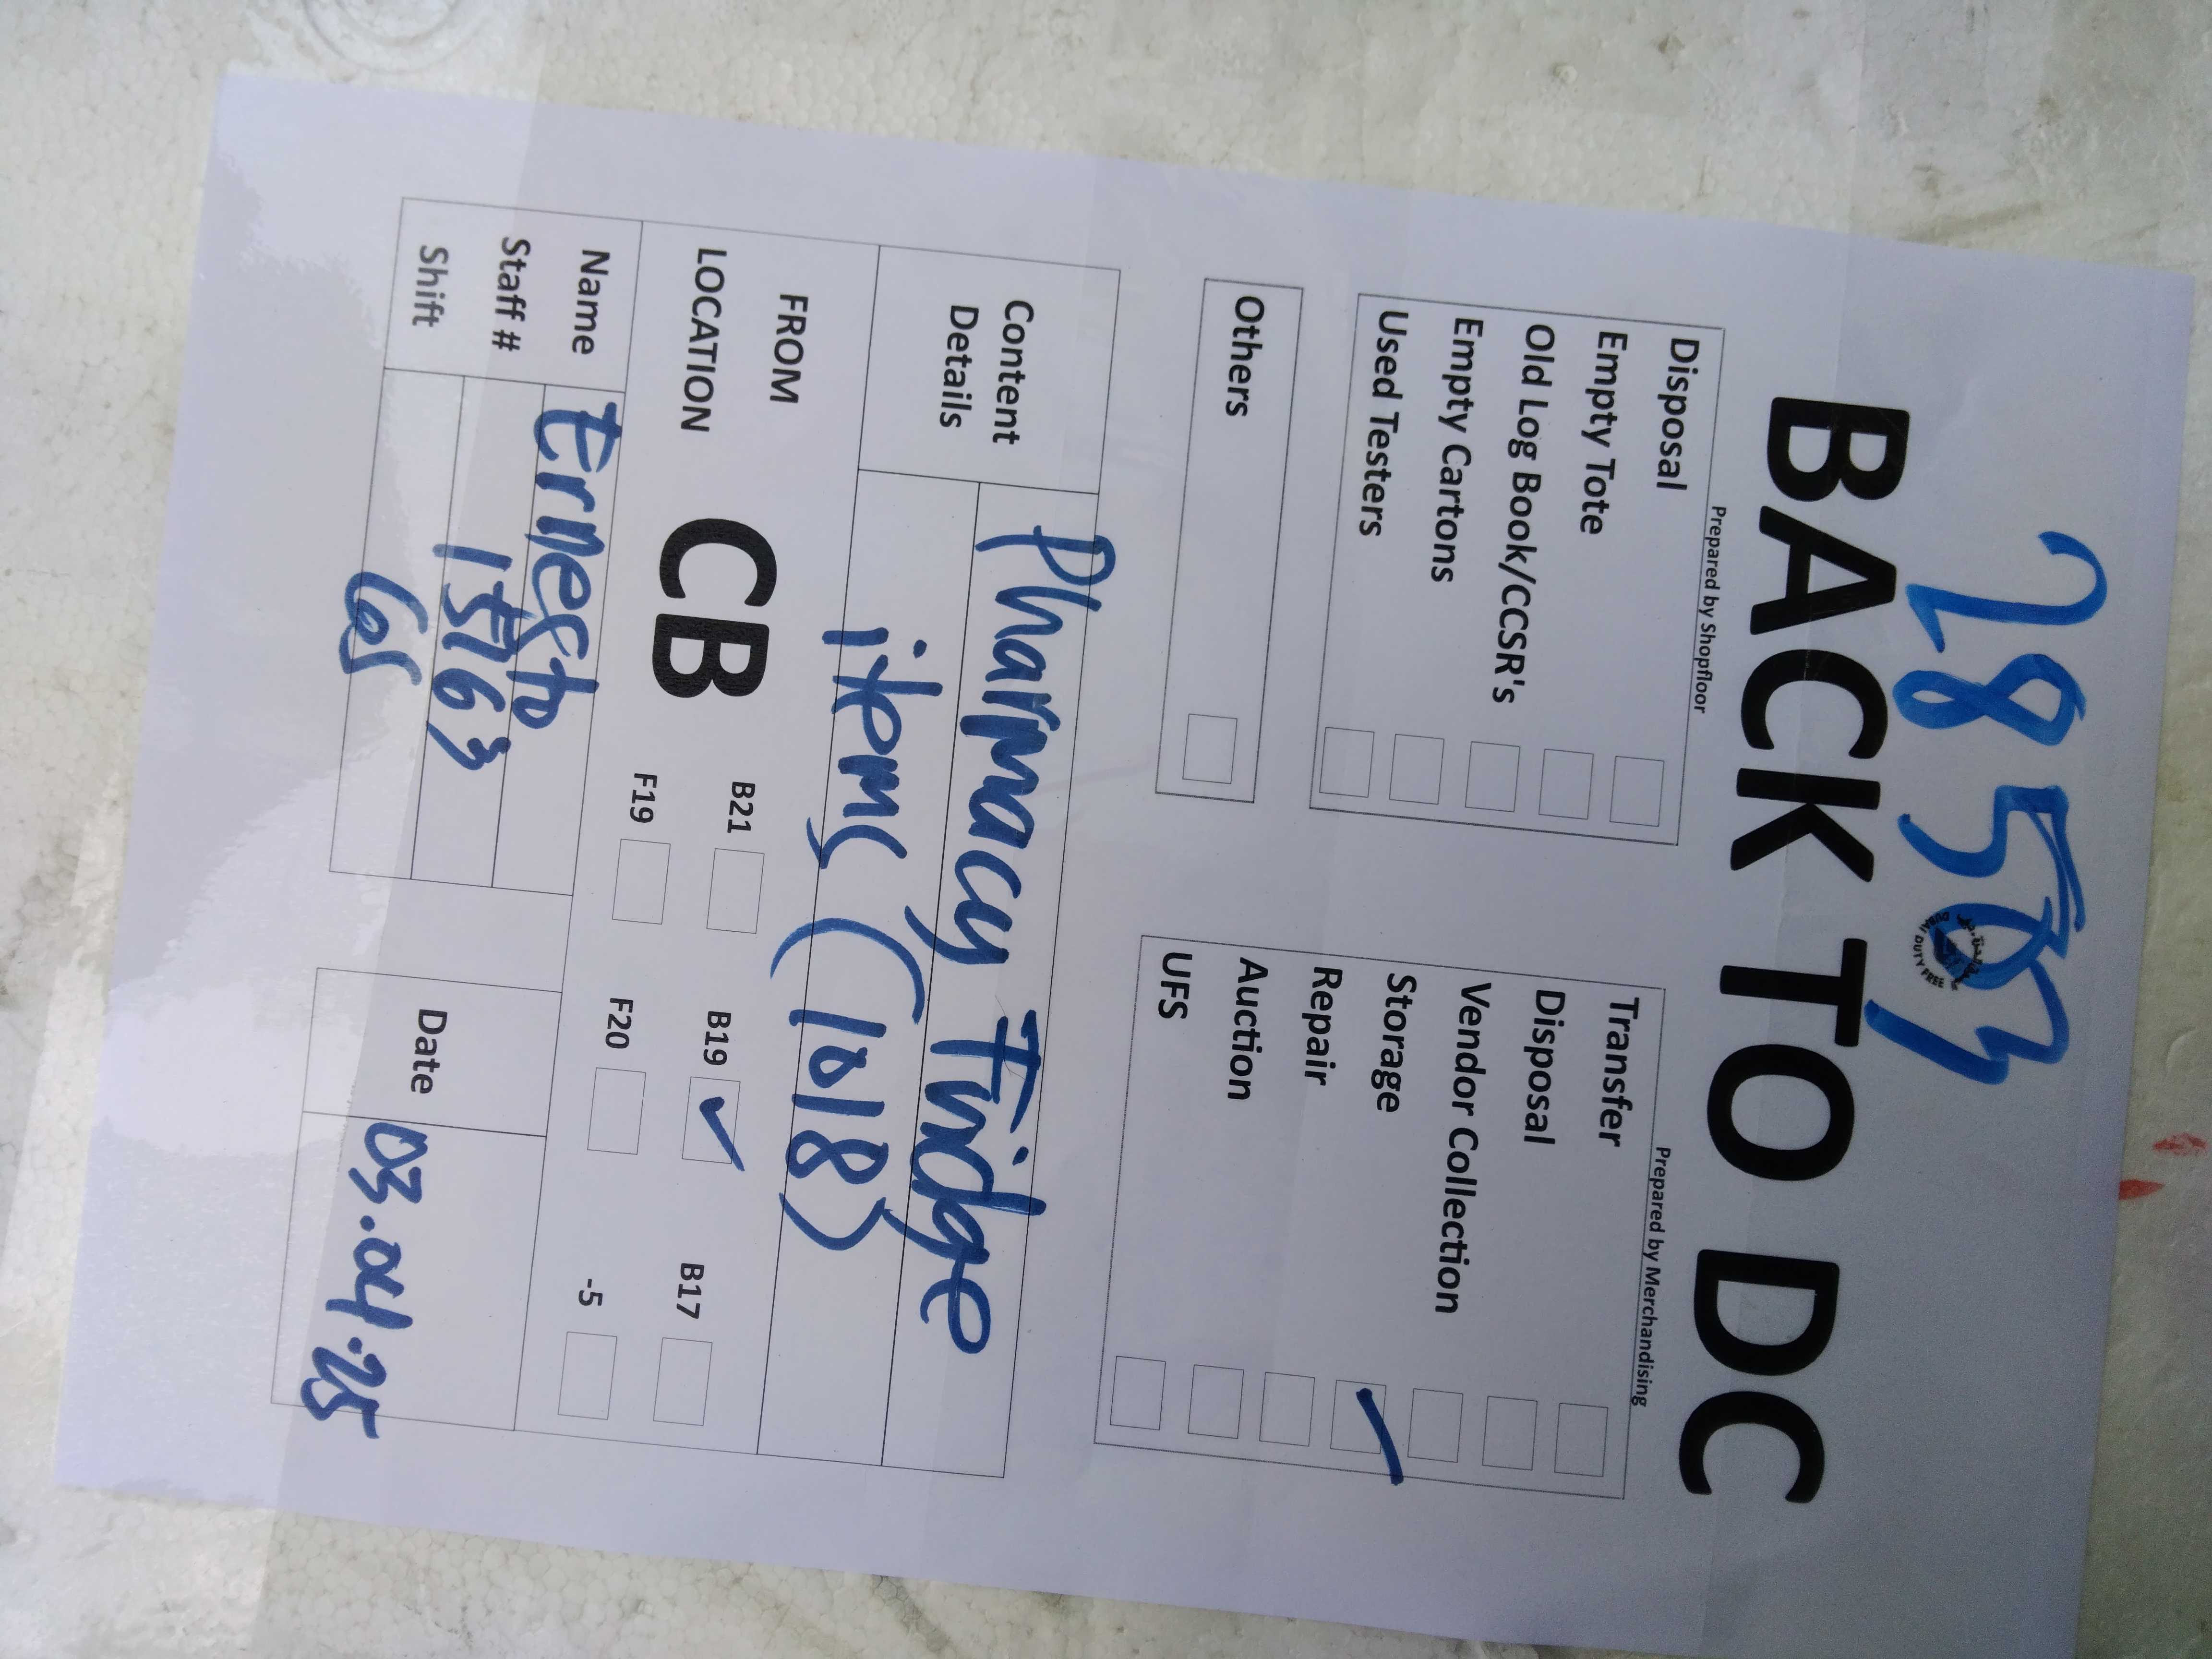 28503
DUBAI DUTY FREE
BACK TO DC
Prepared by Shopfloor
Disposal
Empty Tote
Old Log Book/CCSR's
Empty Cartons
Used Testers
Others
Prepared by Merchandising
Transfer
Disposal
Vendor Collection
Storage ✓
Repair
Auction
UFS
Content Details
Pharmacy Fridge
items (1018)
FROM LOCATION
CB
B21
B19 ✓
B17
F19
F20
-5
Name Ernesto
Staff # 15763
Shift
Date 03.04.25